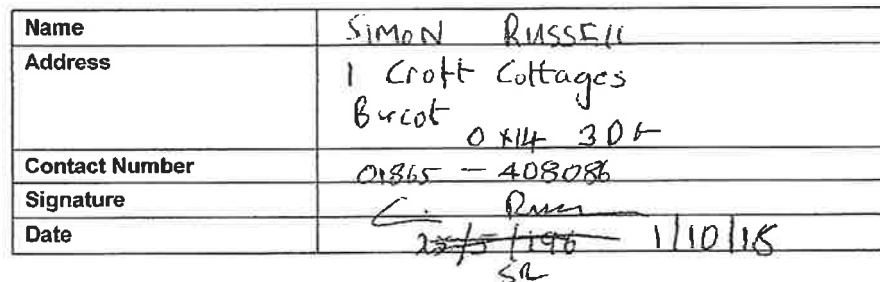 Name SIMON RUSSELL
Address 1 Croft Cottages
Burcot
OX14 3D
Contact Number 01865 - 408086
Signature
Date 1/10/15
SR